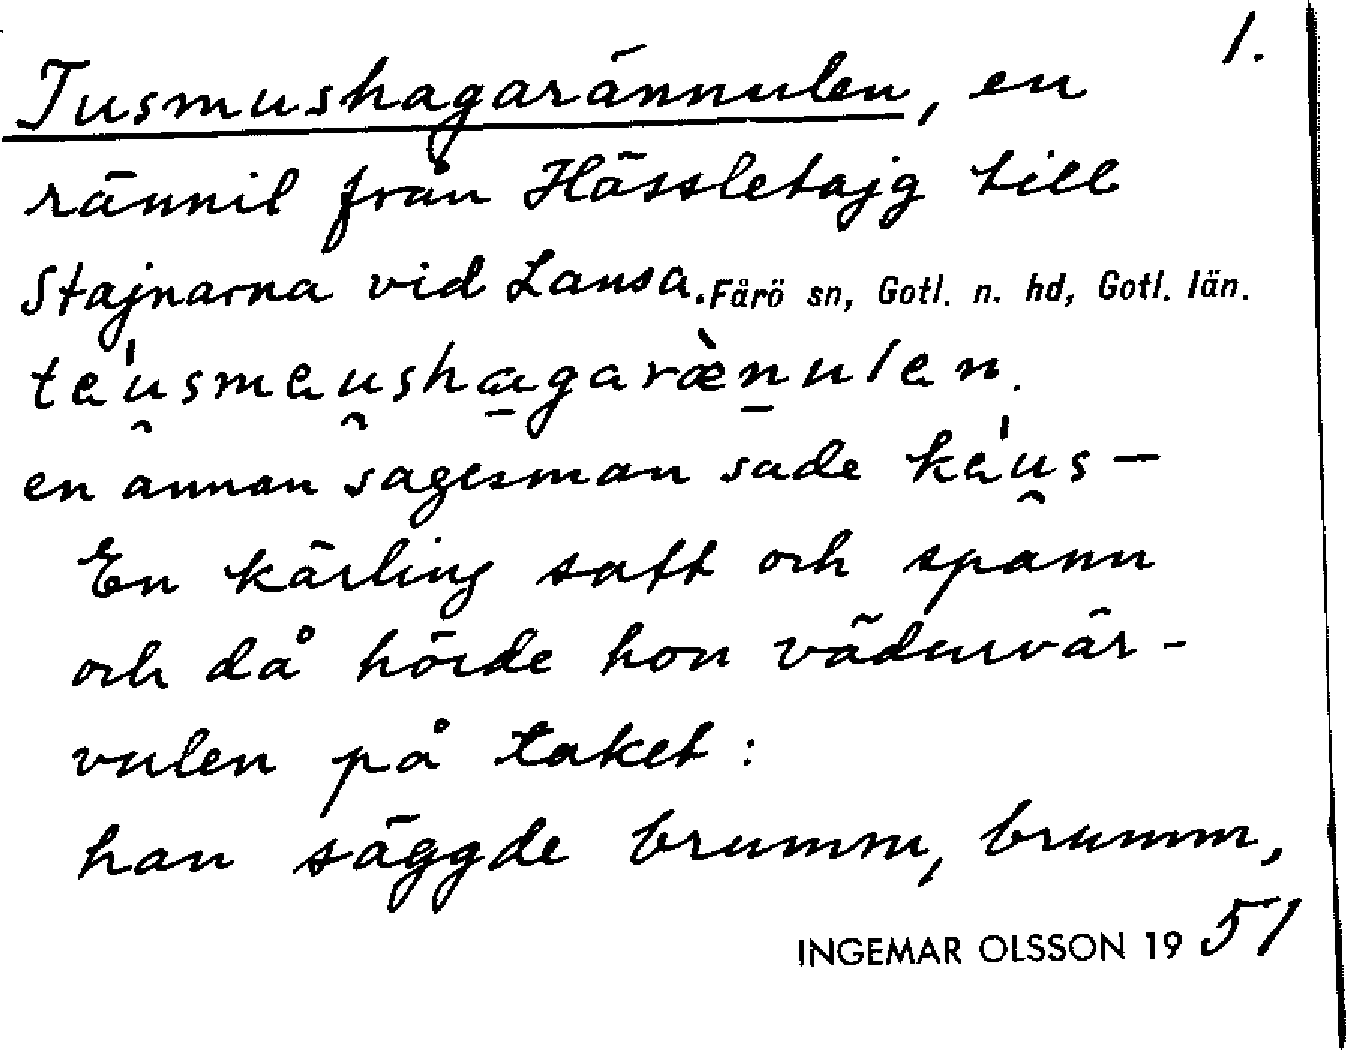 1.
Tusmushagarännulen, en
rännil från Hässletajg till
Stajnarna vid Lansa. Fårö sn, Gotl. n. hd, Gotl. län.
te̍u̯smeu̯sha̠garæ̀n̠ulen.
en annan sagesman sade ke̍u̯s –
En kärling satt och spann
och då hörde hon vädervär-
vulen på taket:
han säggde brumm, brumm,
INGEMAR OLSSON 1951